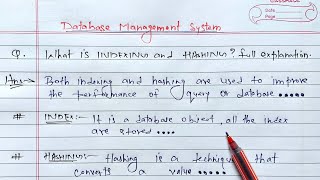 Database Management System
Q. What is INDEXING and HASHING? full explanation.
Ans→ Both indexing and hashing are used to improve
the performance of query or database .....
# INDEX:- It is a database object, all the index
are stored ....
# HASHING:- Hashing is a technique that
converts a value .....